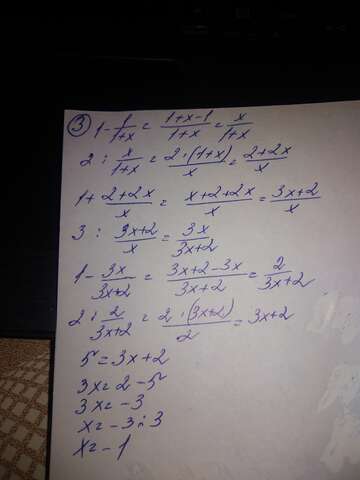 3 1 - 1/(1+x) = (1+x-1)/(1+x) = x/(1+x)
2 : x/(1+x) = 2·(1+x)/x = (2+2x)/x
1 + (2+2x)/x = (x+2+2x)/x = (3x+2)/x
3 : (3x+2)/x = 3x/(3x+2)
1 - 3x/(3x+2) = (3x+2-3x)/(3x+2) = 2/(3x+2)
2 : 2/(3x+2) = 2·(3x+2)/2 = 3x+2
5 = 3x+2
3x = 2 - 5
3x = -3
x = -3 : 3
x = -1